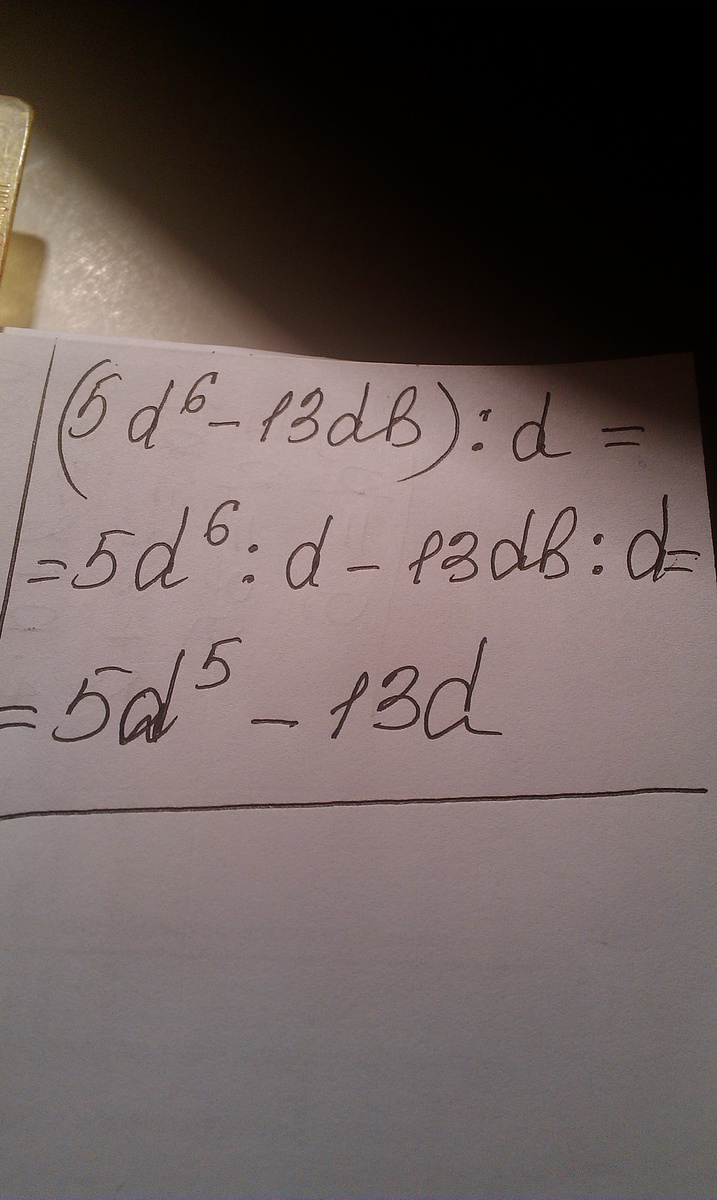 (5d⁶ - 13db) : d =
= 5d⁶ : d - 13db : d =
= 5d⁵ - 13d